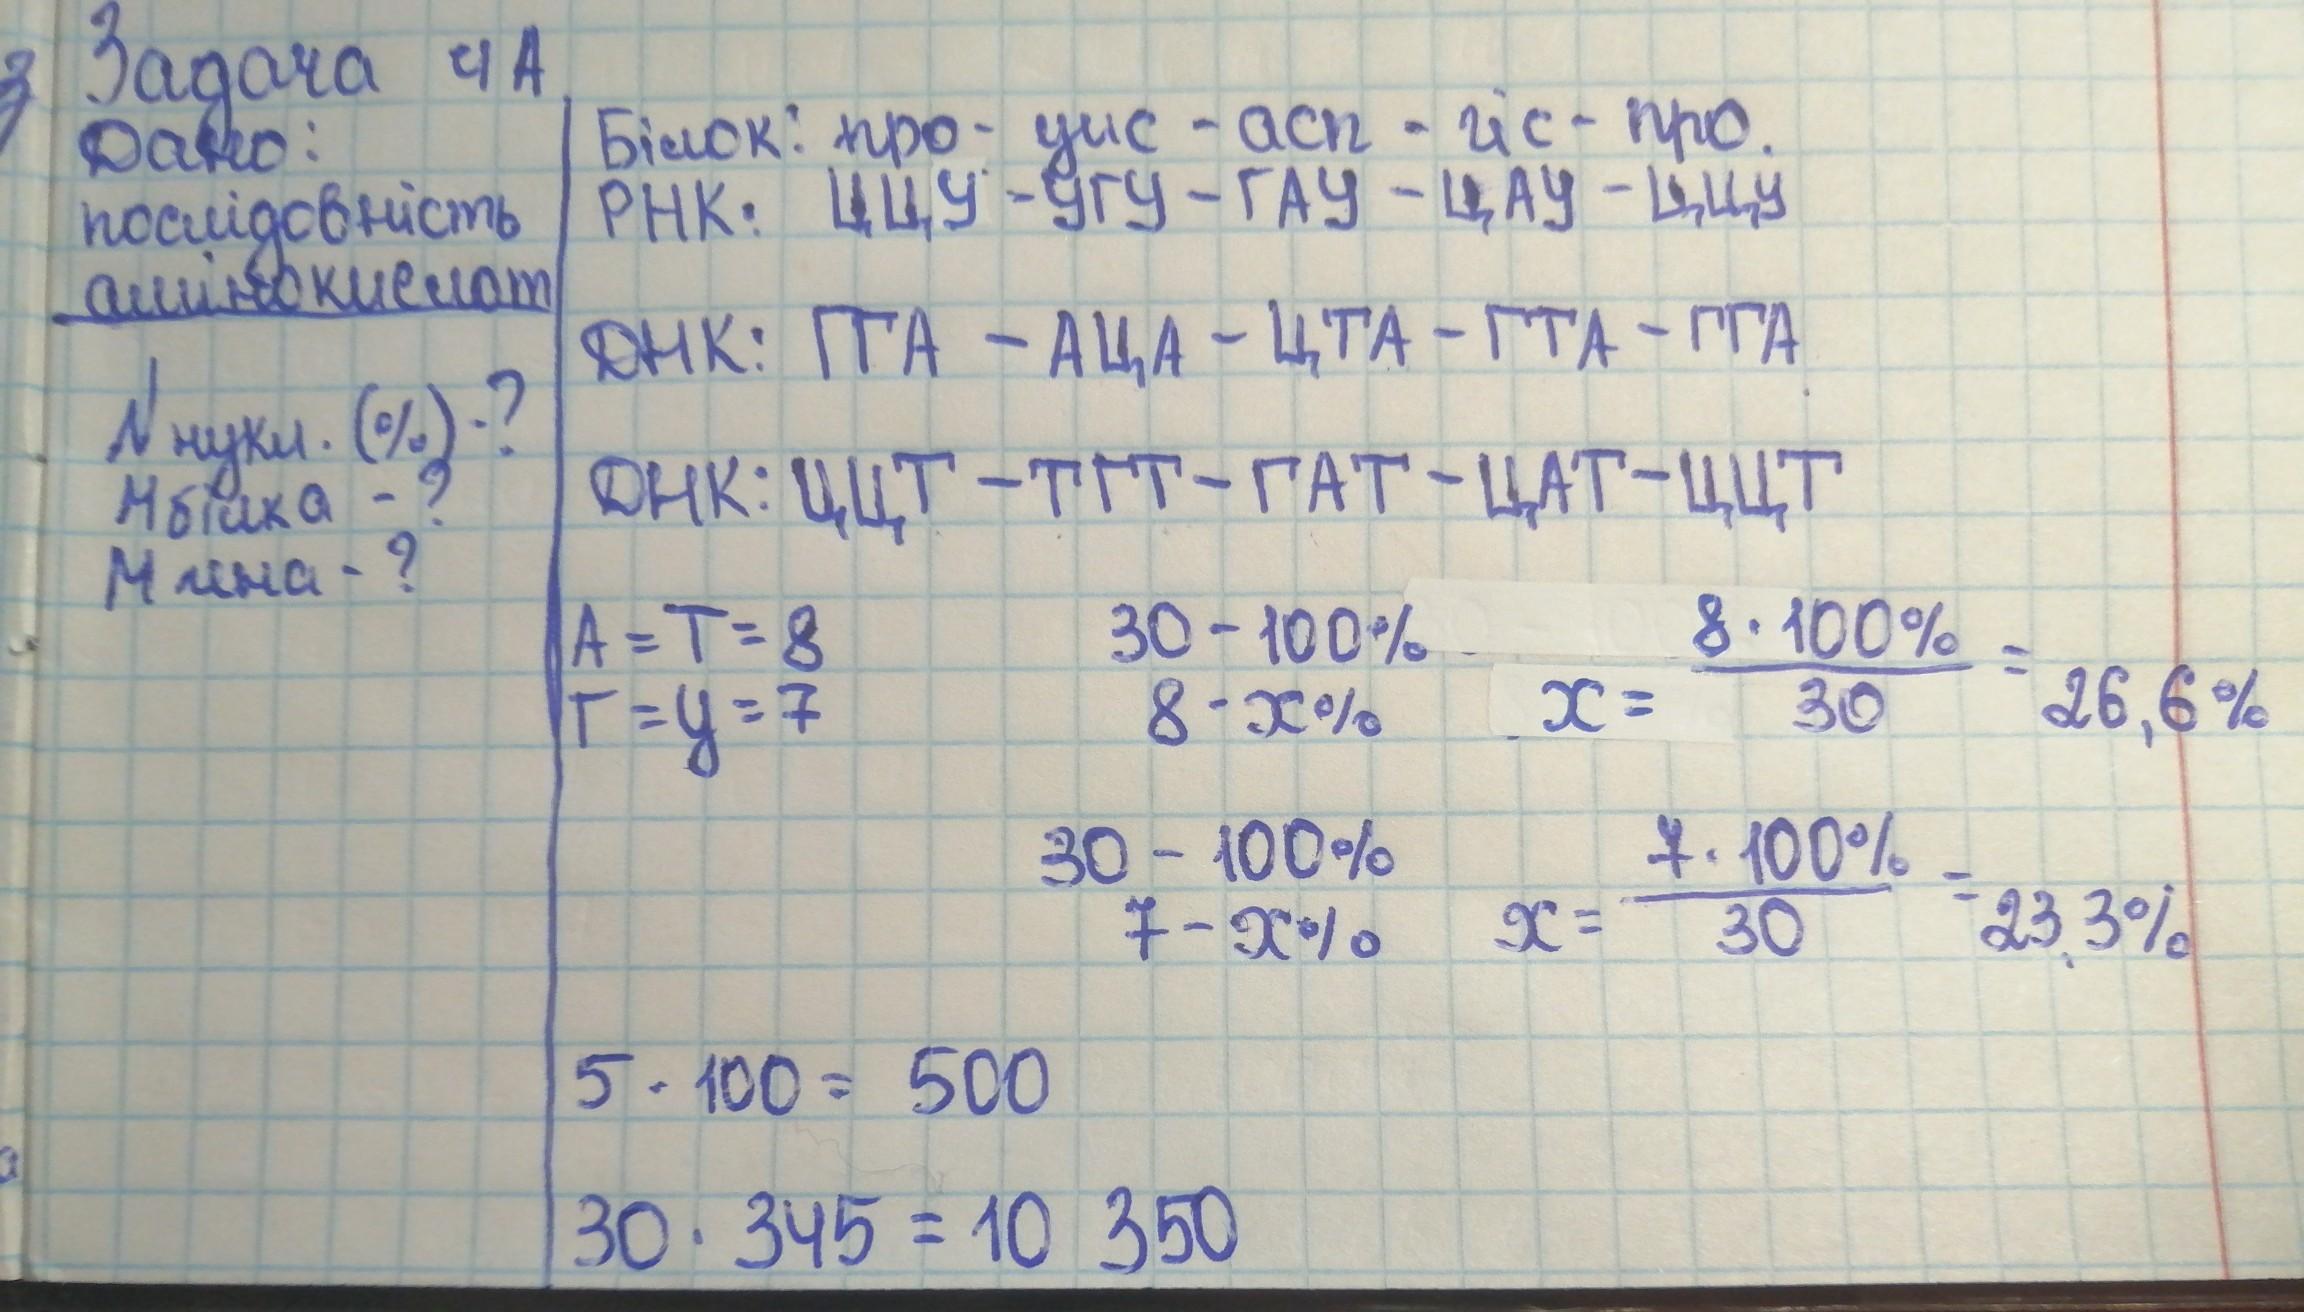 Задача 4А
Дано:
послідовність
амінокислот
N нукл. (%) - ?
М білка - ?
М гена - ?
Білок: про - цис - асп - гіс - про.
РНК: ЦЦУ - УГУ - ГАУ - ЦАУ - ЦЦУ
ДНК: ГГА - АЦА - ЦТА - ГТА - ГГА
ДНК: ЦЦТ - ТГТ - ГАТ - ЦАТ - ЦЦТ
А = Т = 8
Г = Ц = 7
30 - 100%
8 - х%
х = 8 · 100% / 30 = 26,6%
30 - 100%
7 - х%
х = 7 · 100% / 30 = 23,3%
5 · 100 = 500
30 · 345 = 10 350